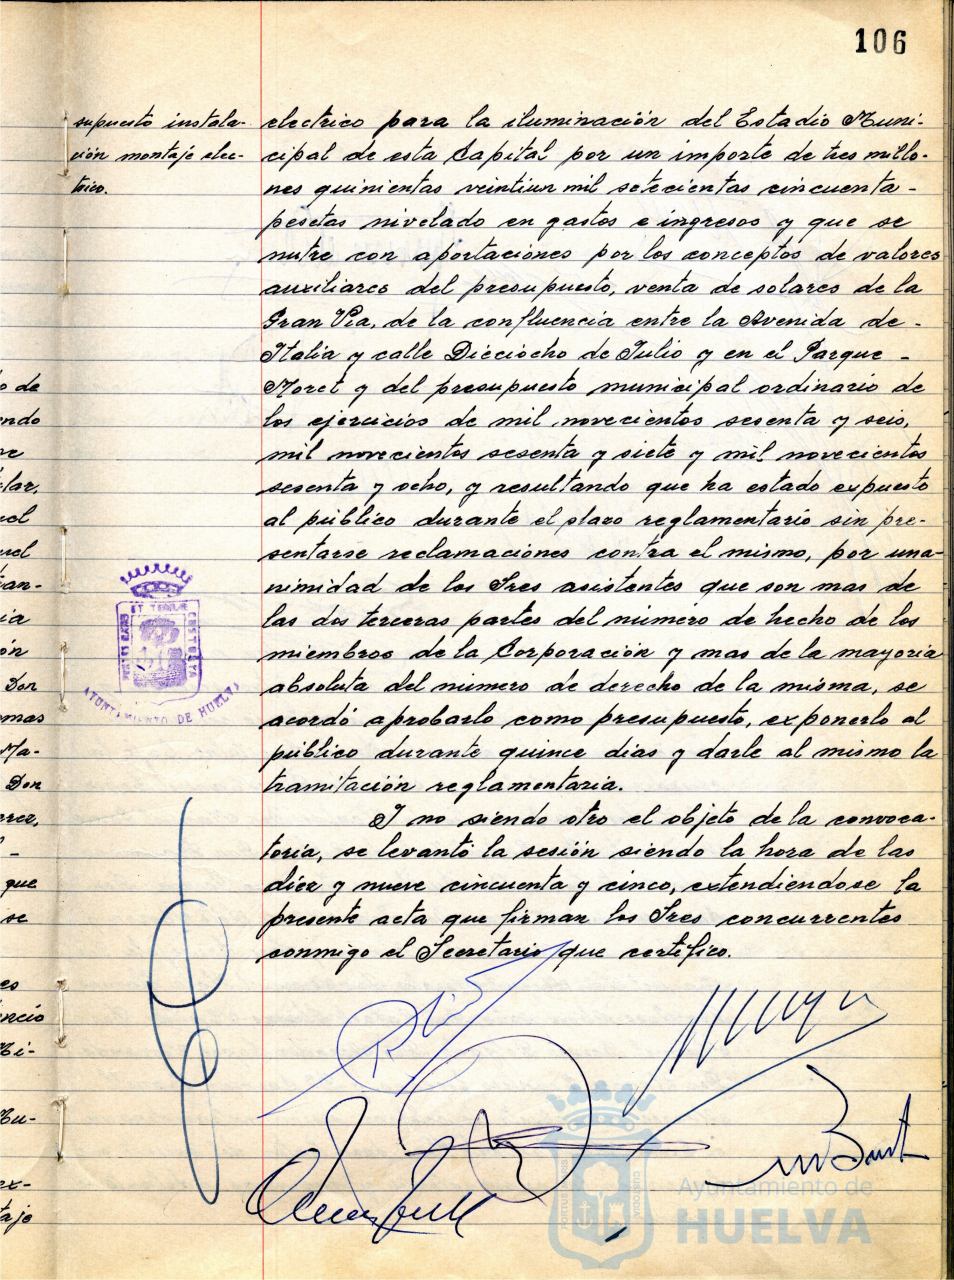 106
supuesto instala-
ción montaje eléc-
trico.
electrico para la iluminación del Estadio Muni-
cipal de esta Capital por un importe de tres millo-
nes quinientas veintiun mil setecientas cincuenta-
pesetas nivelado en gastos e ingresos y que se
nutre con aportaciones por los conceptos de valores
auxiliares del presupuesto, venta de solares de la
Gran Vía, de la confluencia entre la Avenida de-
Italia y calle Dieciocho de Julio y en el Parque-
Moret y del presupuesto municipal ordinario de
los ejercicios de mil novecientos sesenta y seis,
mil novecientos sesenta y siete y mil novecientos
sesenta y ocho, y resultando que ha estado expuesto
al público durante el plazo reglamentario sin pre-
sentarse reclamaciones contra el mismo, por una-
nimidad de los Sres asistentes que son mas de
las dos terceras partes del número de hecho de los
miembros de la Corporación y mas de la mayoria
absoluta del número de derecho de la misma, se
acordó aprobarlo como presupuesto, exponerlo al
público durante quince días y darle al mismo la
tramitación reglamentaria.
Y no siendo otro el objeto de la convoca-
toria, se levantó la sesión siendo la hora de las
diez y nueve cincuenta y cinco, extendiendose la
presente acta que firman los Sres concurrentes
conmigo el Secretario que certifico.
AYUNTAMIENTO DE HUELVA
Ayuntamiento de
HUELVA